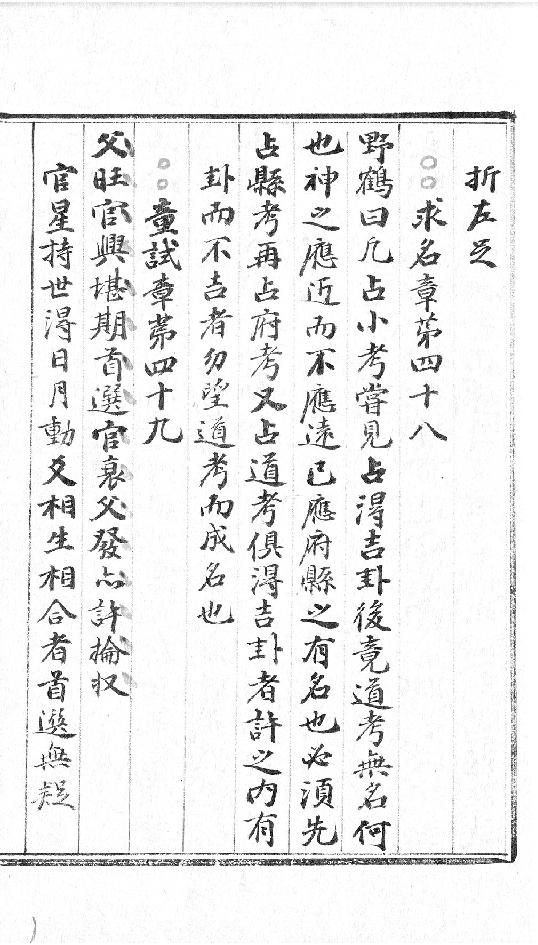 折左足
○○求名章第四十八
野鶴曰凡占小考嘗見占得吉卦後竟道考無名何
也神之應近而不應遠已應府縣之有名也必須先
占縣考再占府考又占道考俱得吉卦者許之內有
卦而不吉者勿望道考而成名也
○○童試章第四十九
父旺官興堪期首選官衰父發亦許掄收
官星持世得日月動爻相生相合者首選無疑